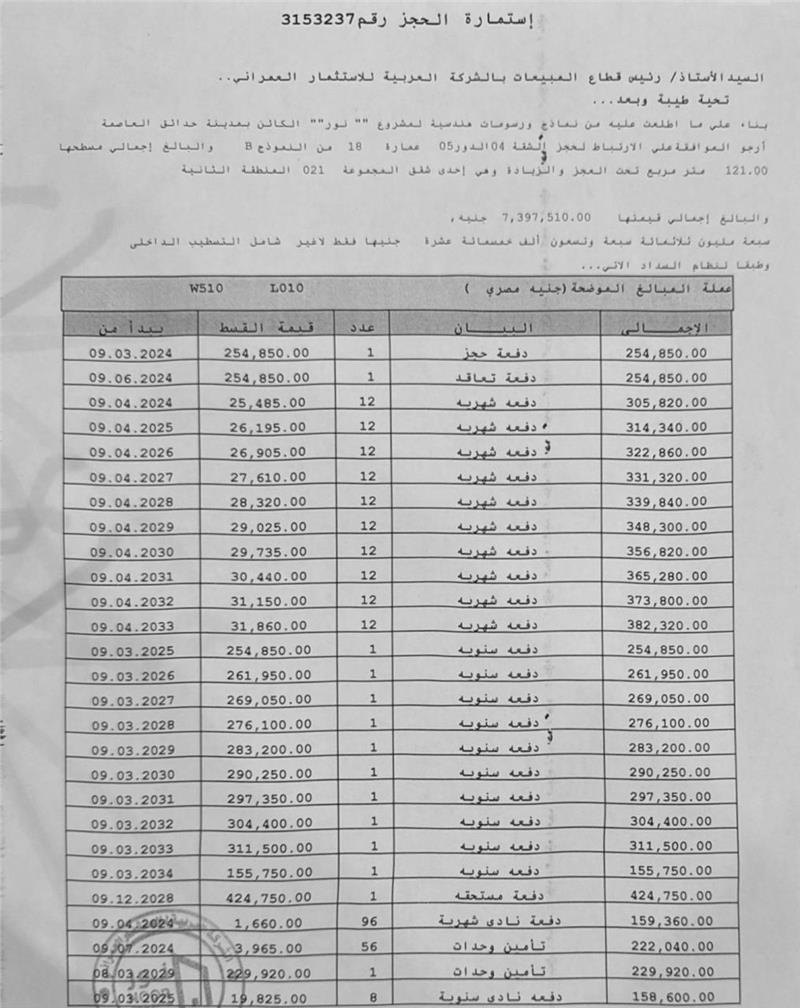 إستمارة الحجز رقم 3153237
السيدالأستاذ/ رئيس قطاع المبيعات بالشركة العربية للاستثمار العمراني..
تحية طيبة وبعد...
بناء علي ما اطلعت عليه من نماذج ورسومات هندسية لمشروع "" نور"" الكائن بمدينة حدائق العاصمة
أرجو الموافقةعلي الارتباط لحجز الشقة 04الدور05 عمارة 18 من النموذج B والبالغ إجمالي مسطحها
121.00 متر مربع تحت العجز والزيادة وهي إحدى شقق المجموعة 021 المنطقة الثانية
والبالغ إجمالي قيمتها 7,397,510.00 جنيه,
سبعة مليون ثلاثمائة سبعة وتسعون ألف خمسمائة عشرة جنيها فقط لاغير شامل التسطيب الداخلى
وطبقا لنظام السداد الاتي...
عملة المبالغ الموضحة(جنيه مصري ) L010 W510
الاجمـــالى البيـــان عدد قيمة القسط يبدأ من
254,850.00 دفعة حجز 1 254,850.00 09.03.2024
254,850.00 دفعة تعاقد 1 254,850.00 09.06.2024
305,820.00 دفعه شهريه 12 25,485.00 09.04.2024
314,340.00 دفعه شهريه 12 26,195.00 09.04.2025
322,860.00 دفعه شهريه 12 26,905.00 09.04.2026
331,320.00 دفعه شهريه 12 27,610.00 09.04.2027
339,840.00 دفعه شهريه 12 28,320.00 09.04.2028
348,300.00 دفعه شهريه 12 29,025.00 09.04.2029
356,820.00 دفعه شهريه 12 29,735.00 09.04.2030
365,280.00 دفعه شهريه 12 30,440.00 09.04.2031
373,800.00 دفعه شهريه 12 31,150.00 09.04.2032
382,320.00 دفعه شهريه 12 31,860.00 09.04.2033
254,850.00 دفعه سنويه 1 254,850.00 09.03.2025
261,950.00 دفعه سنويه 1 261,950.00 09.03.2026
269,050.00 دفعه سنويه 1 269,050.00 09.03.2027
276,100.00 دفعه سنويه 1 276,100.00 09.03.2028
283,200.00 دفعه سنويه 1 283,200.00 09.03.2029
290,250.00 دفعه سنويه 1 290,250.00 09.03.2030
297,350.00 دفعه سنويه 1 297,350.00 09.03.2031
304,400.00 دفعه سنويه 1 304,400.00 09.03.2032
311,500.00 دفعه سنويه 1 311,500.00 09.03.2033
155,750.00 دفعه سنويه 1 155,750.00 09.03.2034
424,750.00 دفعة مستحقه 1 424,750.00 09.12.2028
159,360.00 دفعة نادى شهرية 96 1,660.00 09.04.2024
222,040.00 تأمين وحدات 56 3,965.00 09.07.2024
229,920.00 تأمين وحدات 1 229,920.00 08.03.2029
158,600.00 دفعه نادى سنوية 8 19,825.00 09.03.2025